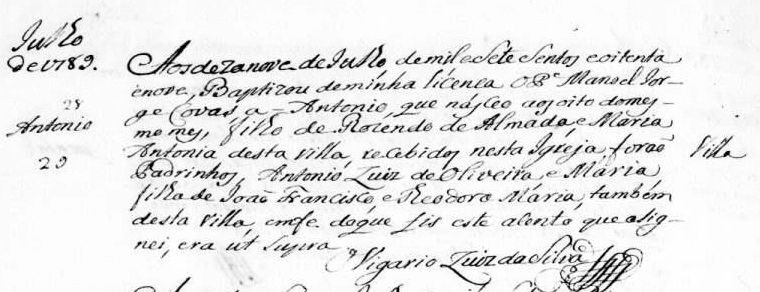 Julho
de 1789.
Aos dezanove de Julho de mil e Sete Sentos e oitenta
e nove, Baptizou de minha licença o Pe Manoel Jor-
ge Covas, a - Antonio, que nasceo aos oito do mes-
mo mes, filho de Rozendo de Almada e Maria
Antonia desta villa, recebidos nesta Igreja forão
Padrinhos, Antonio Luiz de Oliveira e Maria
filha de João Francisco e Theodora Maria, também
desta villa, em fe do que fis este acento que asig-
nei, era ut supra
Vigario Luiz da Silva
28
Antonio
29
Villa